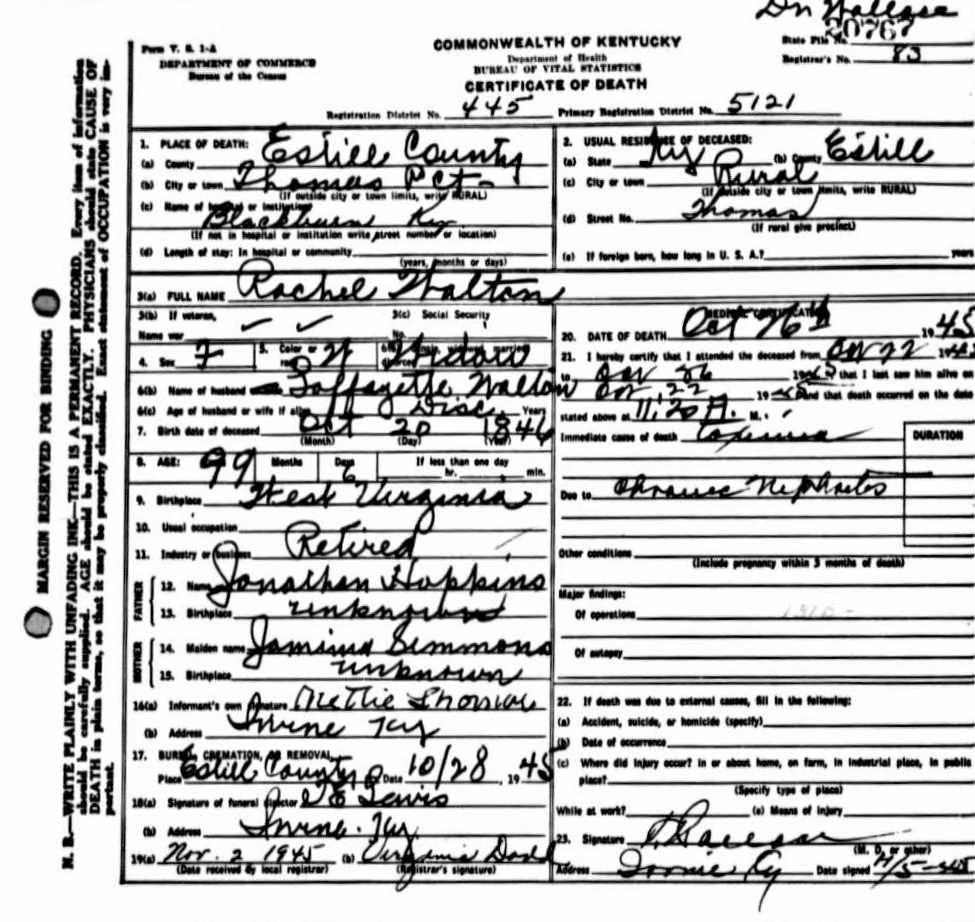 Dr Wallace
20767
State File No.
Registrar's No. 83
Form V. S. 1-A
DEPARTMENT OF COMMERCE
Bureau of the Census
COMMONWEALTH OF KENTUCKY
Department of Health
BUREAU OF VITAL STATISTICS
CERTIFICATE OF DEATH
Registration District No. 445 Primary Registration District No. 5121
MARGIN RESERVED FOR BINDING
N. B.—WRITE PLAINLY WITH UNFADING INK—THIS IS A PERMANENT RECORD. Every item of information
should be carefully supplied. AGE should be stated EXACTLY. PHYSICIANS should state CAUSE OF
DEATH in plain terms, so that it may be properly classified. Exact statement of OCCUPATION is very im-
portant.
1. PLACE OF DEATH:
(a) County Estill County
(b) City or town Thomas Pct-
(If outside city or town limits, write RURAL)
(c) Name of hospital or institution
Blackburn Ky
(If not in hospital or institution write street number or location)
(d) Length of stay: In hospital or community
(years, months or days)
2. USUAL RESIDENCE OF DECEASED:
(a) State Ky (b) County Estill
(c) City or town Rural
(If outside city or town limits, write RURAL)
(d) Street No. Thomas
(If rural give precinct)
(e) If foreign born, how long in U. S. A.? years
3(a) FULL NAME Rachel Walton
3(b) If veteran,
Name war
3(c) Social Security
No.
4. Sex F 5. Color or race W Widow
6(b) Name of husband Laffayette Walton
6(c) Age of husband or wife if alive Disc. Years
7. Birth date of deceased Oct 20 1846
(Month) (Day) (Year)
8. AGE: 99 Months Days 6 If less than one day
hr. min.
9. Birthplace West Virginia
10. Usual occupation
11. Industry or business Retired
FATHER
12. Name Jonathan Hopkins
13. Birthplace unknown
MOTHER
14. Maiden name Jamima Simmons
15. Birthplace unknown
16(a) Informant's own signature Nettie Thomas
(b) Address Irvine Ky
17. BURIAL, CREMATION, OR REMOVAL
Place Estill County Date 10/28, 1945
18(a) Signature of funeral director Lewis
(b) Address Irvine. Ky.
19(a) Nov. 2 1945 (b) Virginia Dodd
(Date received by local registrar) (Registrar's signature)
MEDICAL CERTIFICATION
20. DATE OF DEATH Oct 26th 1945
21. I hereby certify that I attended the deceased from Oct 22 1945
to Oct 26 1945 that I last saw him alive on
Oct. 22 1945 and that death occurred on the date
stated above at 11:20 A. M.
Immediate cause of death
DURATION
Due to Chronic Nephritis
Other conditions
(Include pregnancy within 3 months of death)
Major findings:
Of operations
Of autopsy
22. If death was due to external causes, fill in the following:
(a) Accident, suicide, or homicide (specify)
(b) Date of occurrence
(c) Where did injury occur? In or about home, on farm, in industrial place, in public
place?
(Specify type of place)
While at work? (e) Means of injury
23. Signature
(M. D. or other)
Address Irvine Ky Date signed